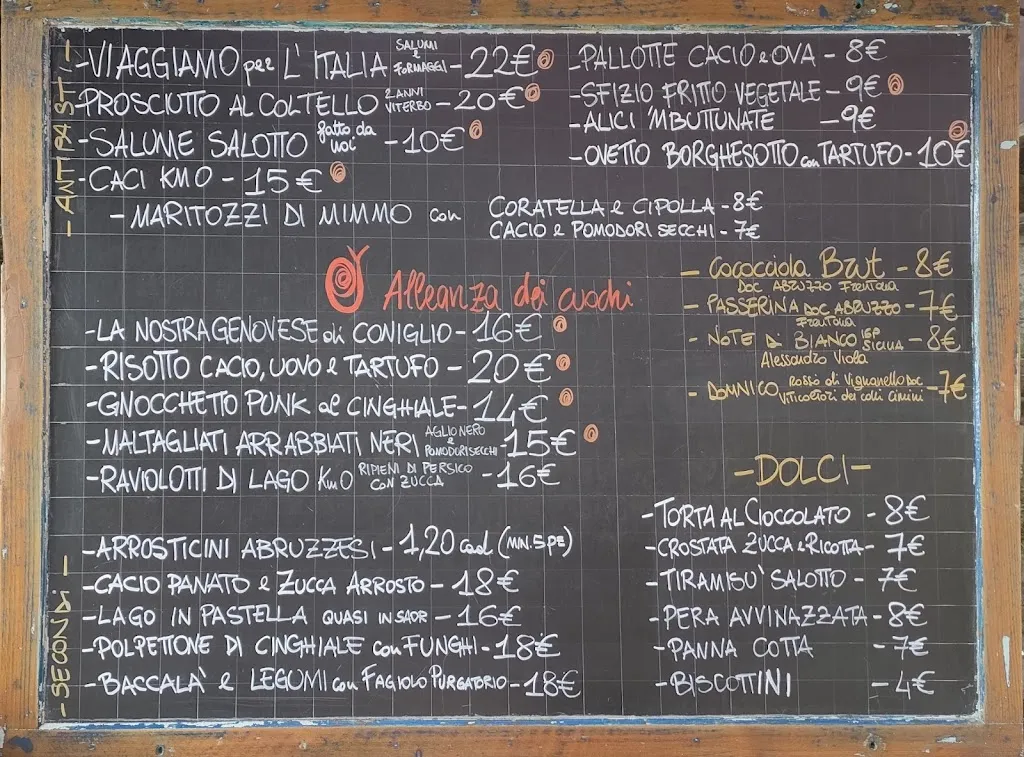 - ANTIPASTI -
- VIAGGIAMO per L'ITALIA SALUMI e FORMAGGI - 22€
- PROSCIUTTO AL COLTELLO 2 ANNI VITERBO - 20€
- SALUME SALOTTO fatto da noi - 10€
- CACI KM0 - 15€
- PALLOTTE CACIO e OVA - 8€
- SFIZIO FRITTO VEGETALE - 9€
- ALICI 'MBUTTUNATE - 9€
- OVETTO BORGHESOTTO con TARTUFO - 10€
- MARITOZZI DI MIMMO con CORATELLA e CIPOLLA - 8€
CACIO e POMODORI SECCHI - 7€
Alleanza dei cuochi
- LA NOSTRA GENOVESE di CONIGLIO - 16€
- RISOTTO CACIO, UOVO e TARTUFO - 20€
- GNOCCHETTO PUNK al CINGHIALE - 14€
- MALTAGLIATI ARRABBIATI NERI AGLIO NERO e POMODORI SECCHI - 15€
- RAVIOLOTTI DI LAGO Km0 RIPIENI DI PERSICO CON ZUCCA - 16€
- Cococciola Brut - 8€
DOC ABRUZZO Frentana
- PASSERINA DOC ABRUZZO - 7€
Frentana
- NOTE DI BIANCO IGP SICILIA - 8€
Alessandro Viola
- DOMNICO Rosso di Vignanello DOC - 7€
Viticoltori dei colli Cimini
- SECONDI -
- ARROSTICINI ABRUZZESI - 1,20 cad (MIN. 5 PZ)
- CACIO PANATO e ZUCCA ARROSTO - 18€
- LAGO IN PASTELLA QUASI IN SAOR - 16€
- POLPETTONE DI CINGHIALE con FUNGHI - 18€
- BACCALA' e LEGUMI con FAGIOLO PURGATORIO - 18€
- DOLCI -
- TORTA AL CIOCCOLATO - 8€
- CROSTATA ZUCCA e RICOTTA - 7€
- TIRAMISU' SALOTTO - 7€
- PERA AVVINAZZATA - 8€
- PANNA COTTA - 7€
- BISCOTTINI - 4€